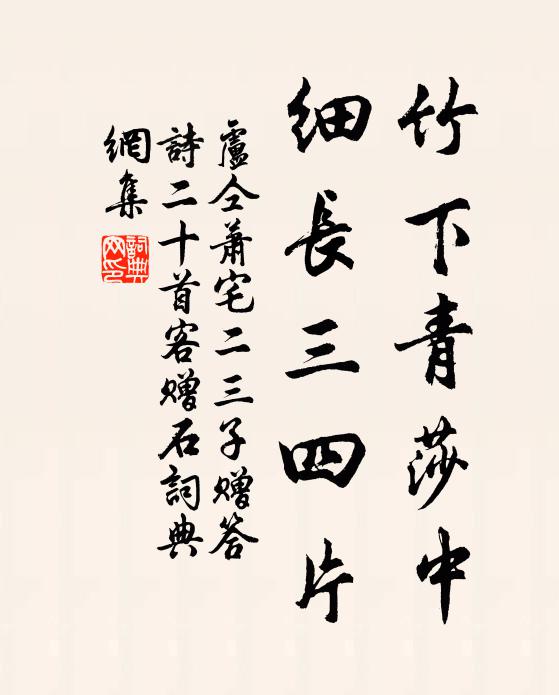 竹下青莎中
細長三四片
盧仝蕭宅二三子贈答
詩二十首客贈石詞典
網集
詞典網印